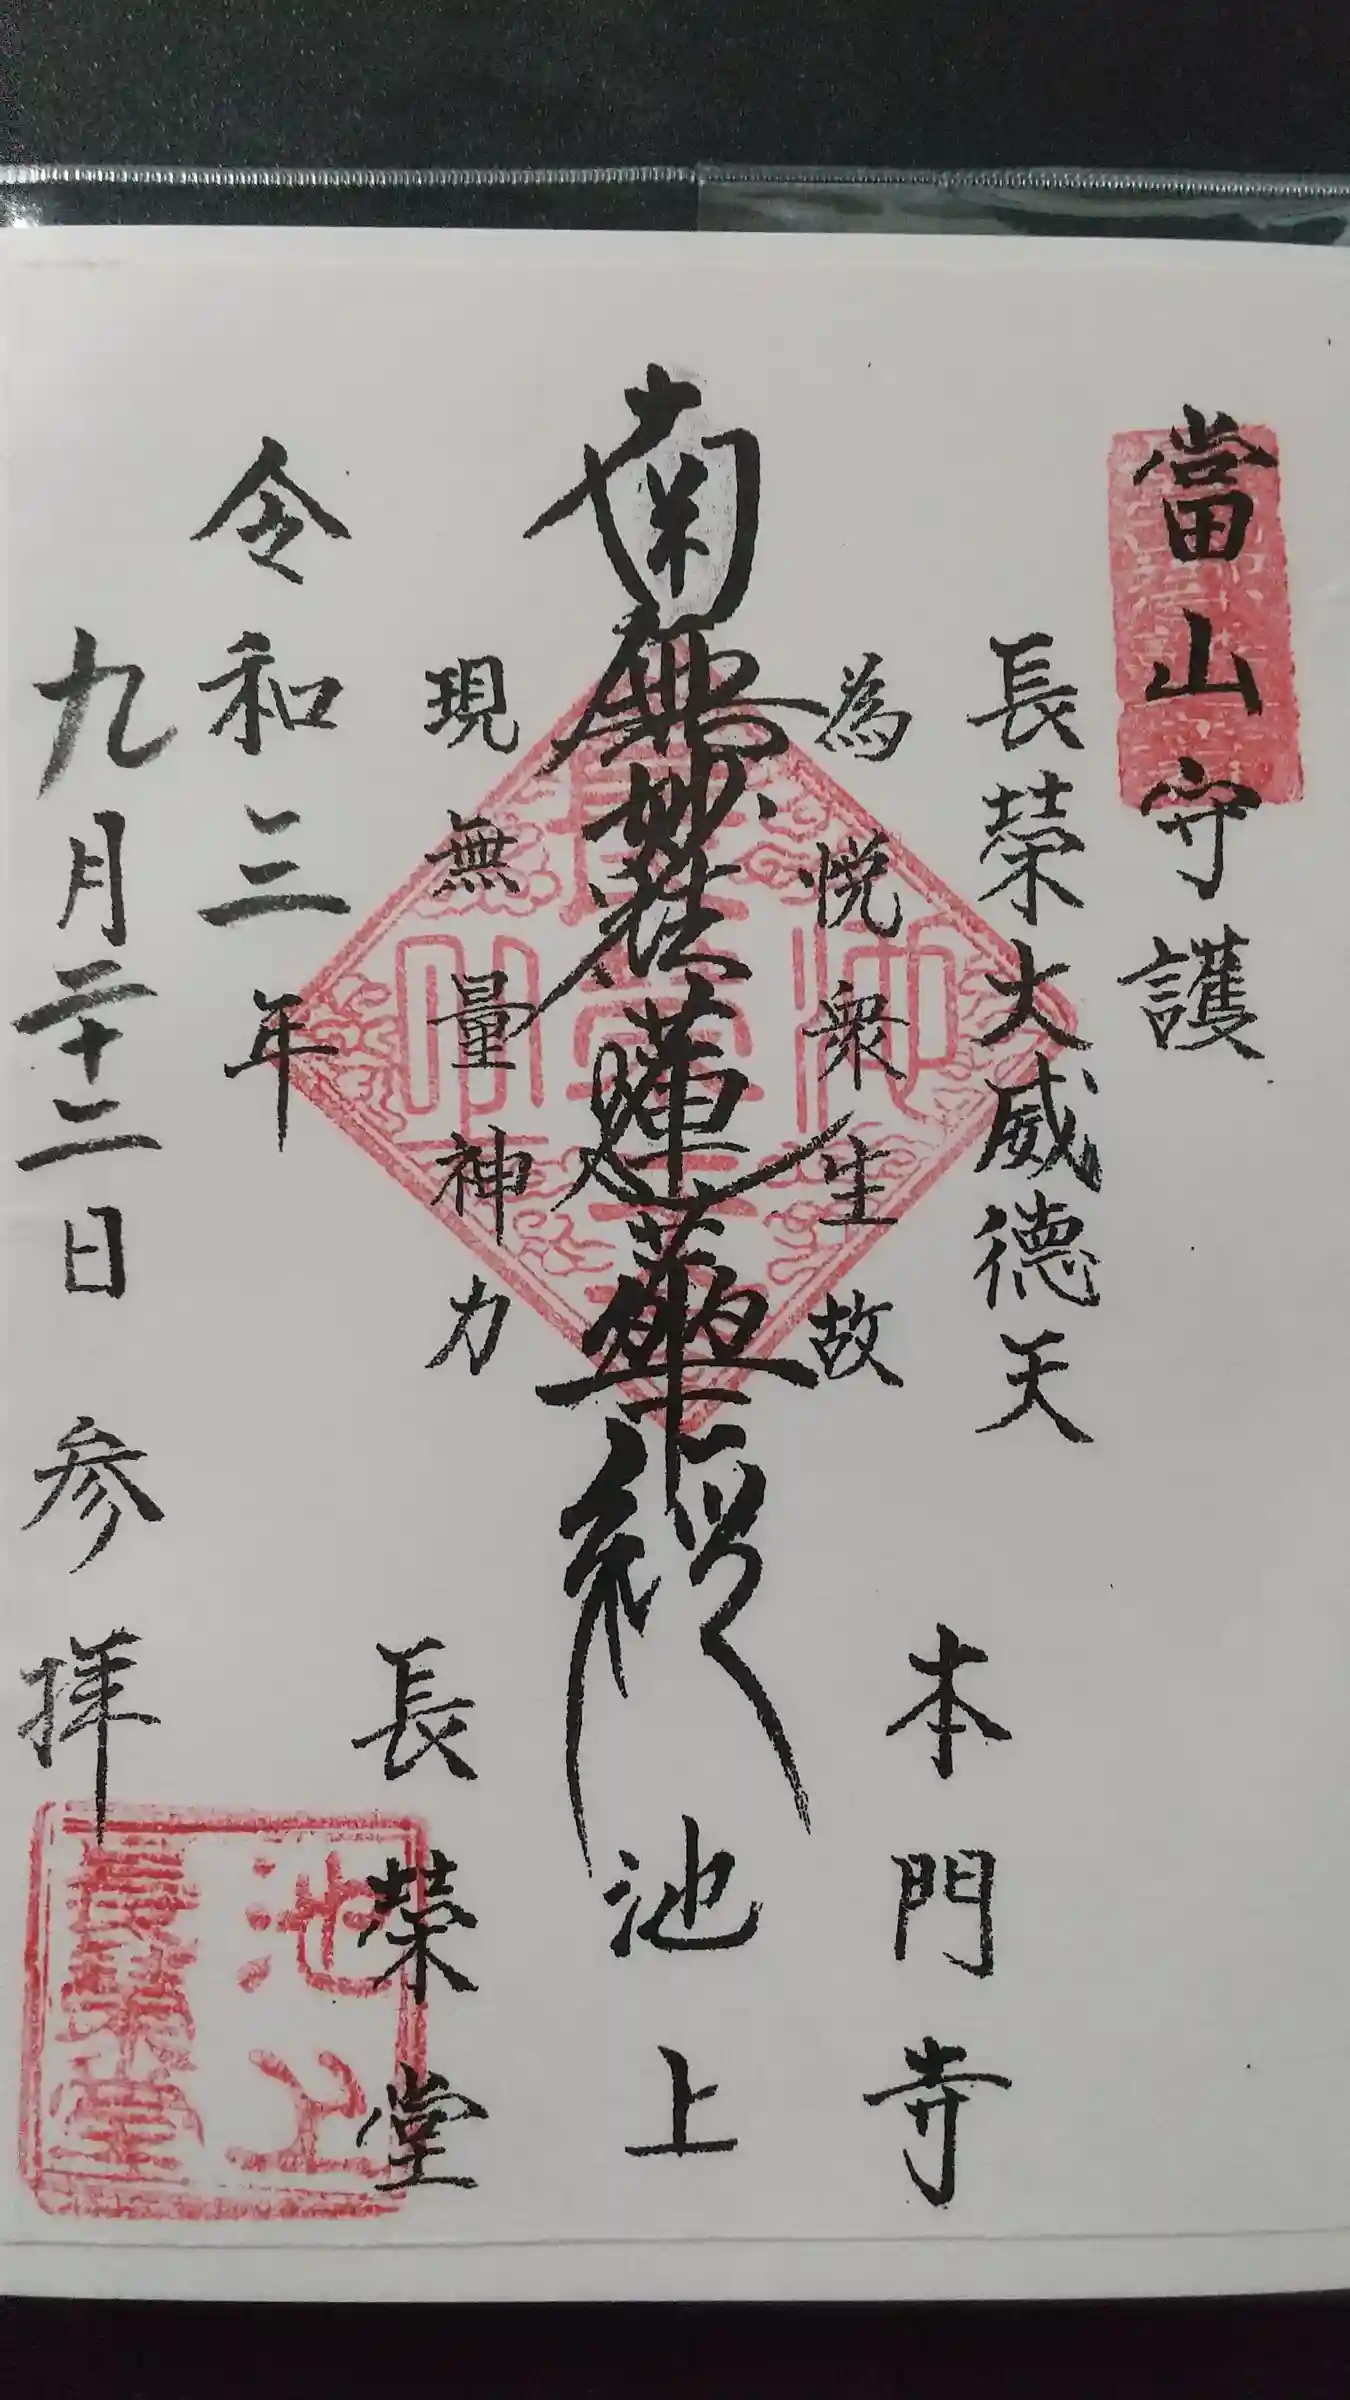 當山守護
長榮大威德天
為悅衆生故
南無妙法蓮華経
現無量神力
令和三年
九月二十二日 参拝
本門寺
池上
長榮堂
池上
長榮堂